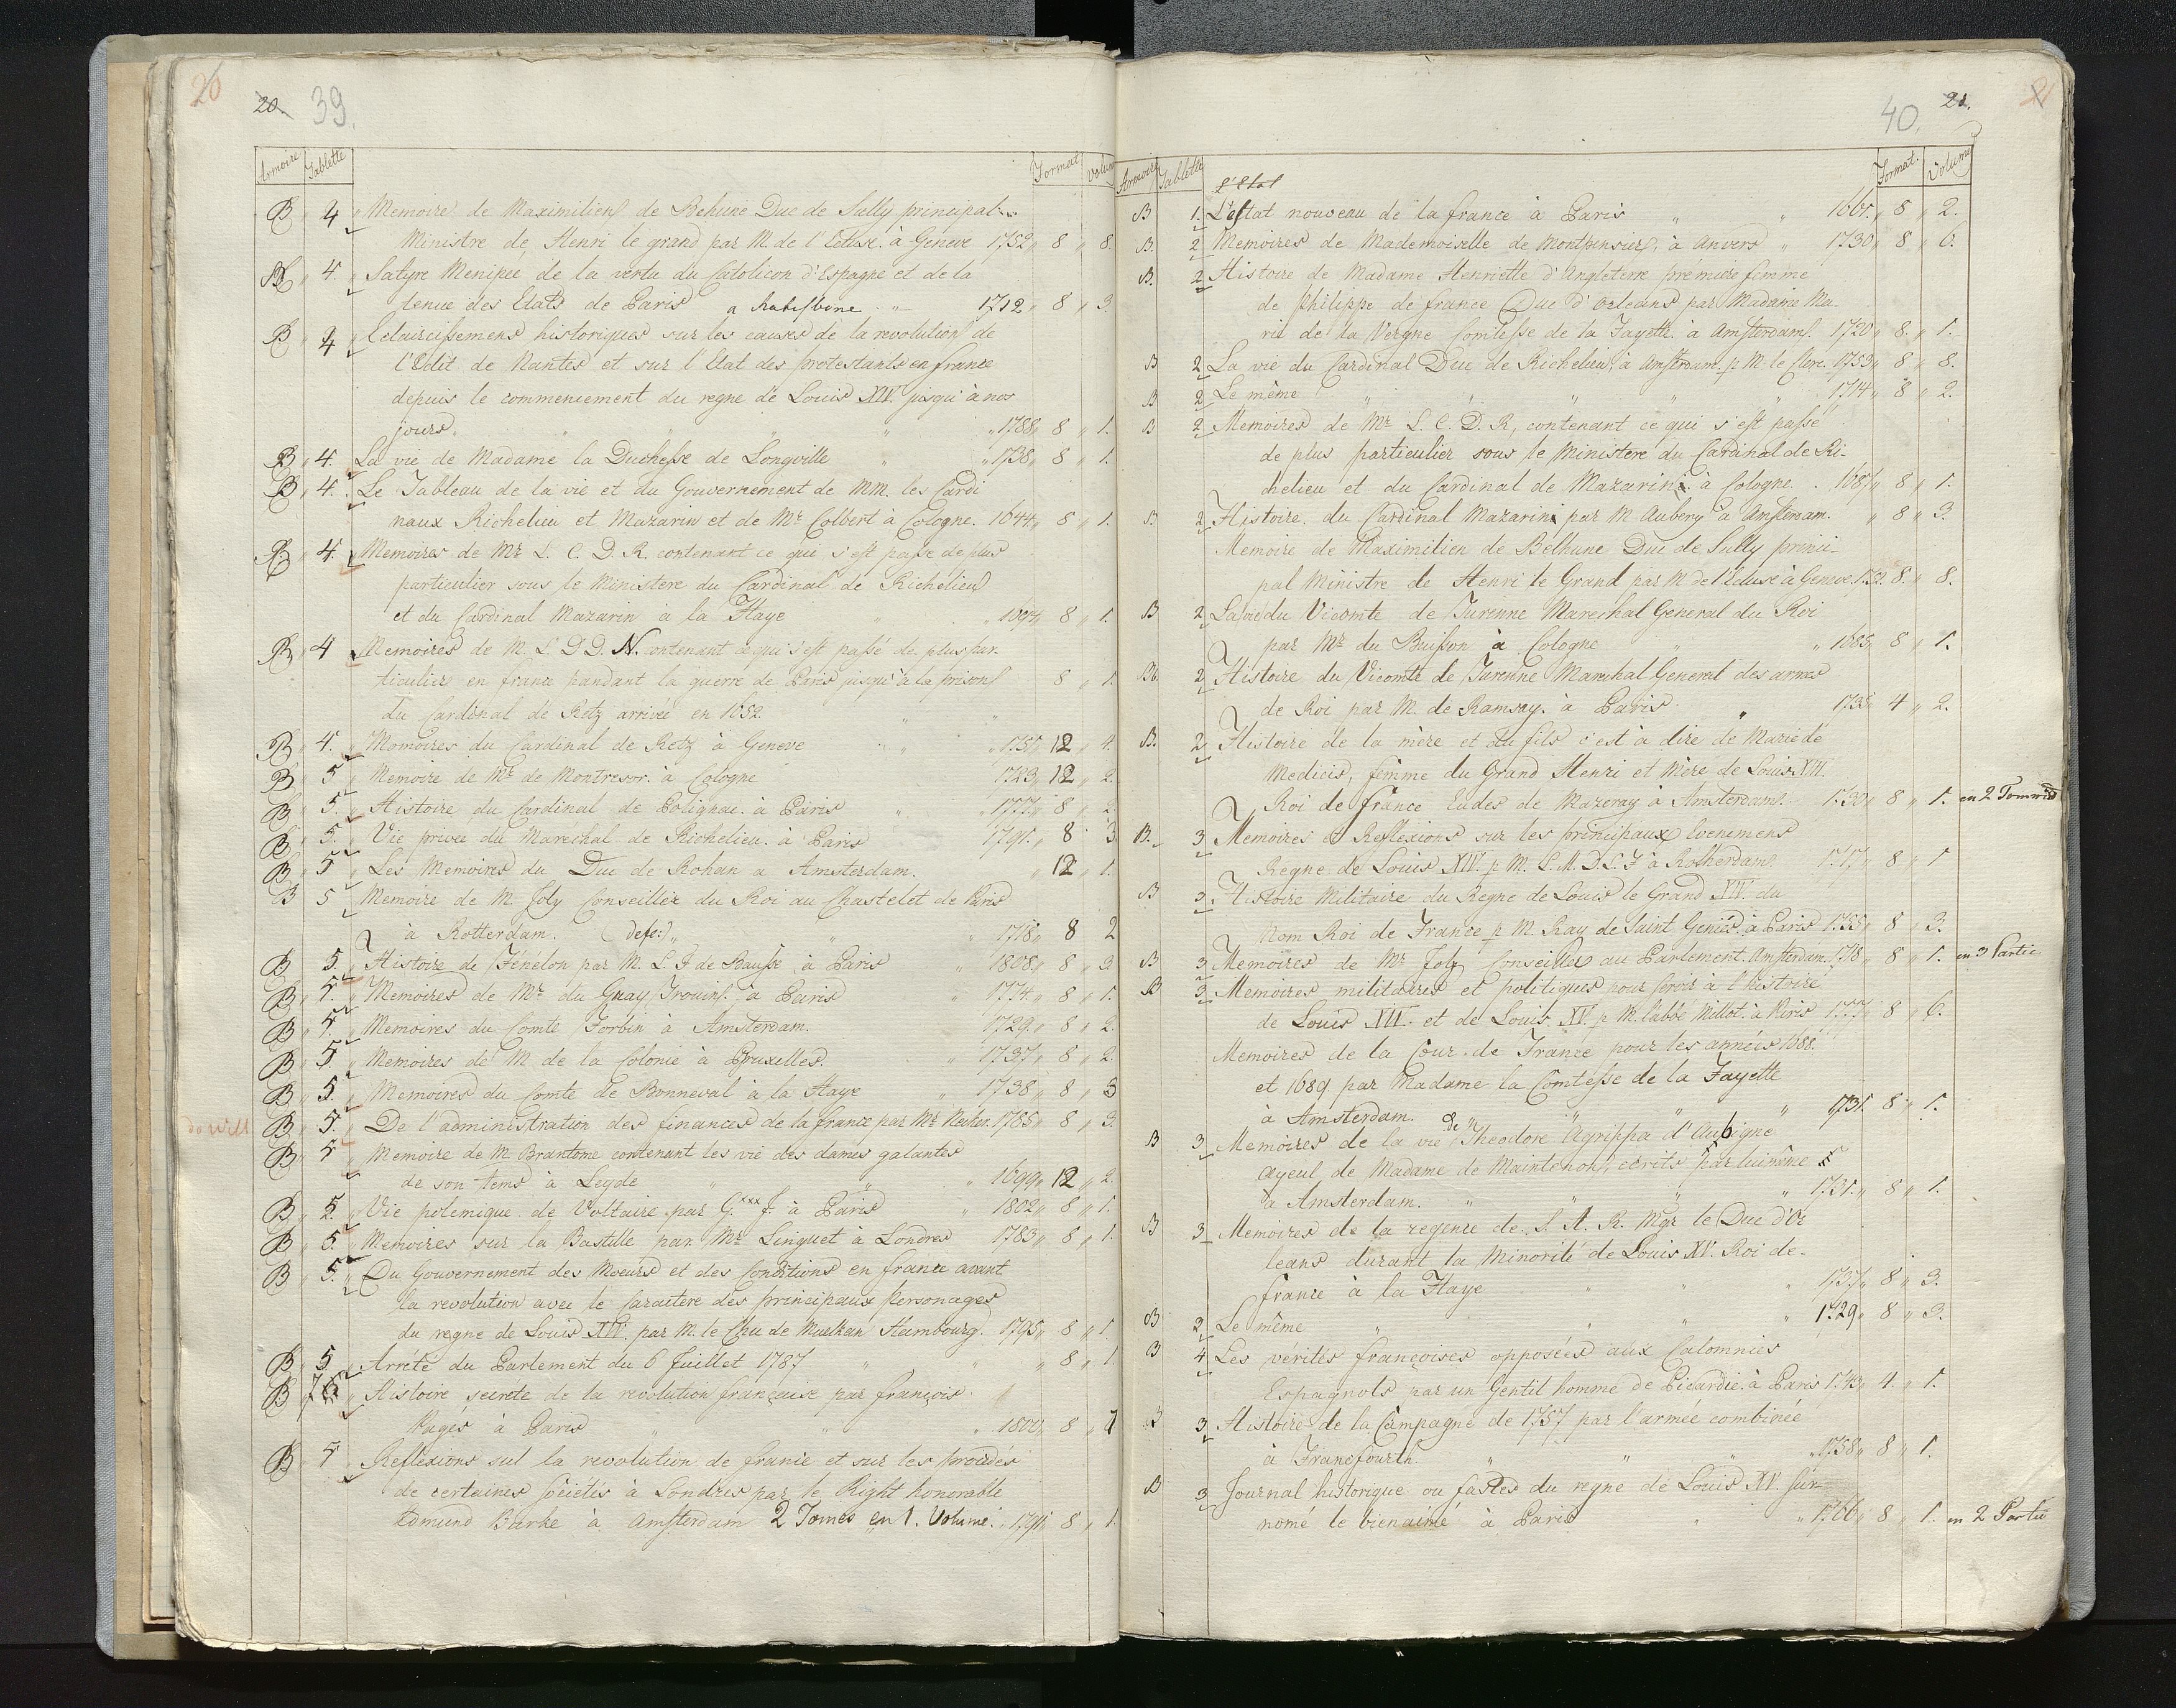 20
20. 39.
Armoire Tablette Format Volum
B 4 Memoire de Maximilien de Bethune Duc de Sully principal
Ministre de Henri le grand par M. de l'Ecluse. à Geneve 1752 8 8.
B 4. Satyre Menipée de la vertu du Catolicon d'Espagne et de la
tenue des Etats de Paris a Ratisbone 1712 8 3.
B 4 Eclaircissemens historiques sur les causes de la revolution de
l'Edit de Nantes et sur l'Etat des protestants en france
depuis le commencement du regne de Louis XIV jusqu'à nos
jours. 1788 8 1.
B 4. La vie de Madame la Duchesse de Longville 1738 8 1.
B 4. Le Tableau de la vie et du Gouvernement de MM. les Cardi
naux Richelieu et Mazarin et de Mr Colbert à Cologne. 1644 8 1.
B 4. Memoires de Mr L. C. D. R. contenant ce qui s'est passe de plus
particulier sous le Ministere du Cardinal de Richelieu
et du Cardinal Mazarin à la Haye 1694 8 1.
B 4 Memoires de M. L D D. N. contenant ce qui s'est passé de plus par-
ticulier en france pandant la guerre de Paris jusqu'à la prison 8 1.
du Cardinal de Retz arrivée en 1652
B 4. Momoires du Cardinal de Retz à Geneve 12 4.
B 5 Memoire de Mr de Montresor. à Cologne 1723 12 2
B 5. Histoire du Cardinal de Polignac. à Paris 1777 8 2
B 5. Vie privée du Marechal de Richelieu. à Paris 1791. 8 3
B 5 Les Memoires du Duc de Rohan a Amsterdam. 12 1.
B 5 Memoire de M. Joly Conseiller du Roi au Chastelet de Paris
à Rotterdam. (defec:) 1718 8 2
B 5. Histoire de Fénélon par M. L. F. de Bausse à Paris 1808 8 3
B 5. Memoires de Mr du Guay Trouin. à Paris 1774 8 1.
B 5. Memoires du Comte Forbin à Amsterdam. 1729. 8 2.
B 5 Memoires de M de la Colonie à Bruxelles. 1737 8 2.
B 5. Memoires du Comte de Bonneval à la Haye 1738 8 3
B 5. De l'administration des finances de la france par Mr Necker. 1785 8 3.
B 5 Memoire de M. Brantome contenant les vie des dames galantes
de son tems à Leyde 1699 12 2.
B 5. Vie polemique de Voltaire par G.xxx J. à Paris 1802 8 1.
B 5. Memoires sur la Bastille par Mr Linguet à Londres 1783 8 1.
B 5. Du Gouvernement des Moeurs et des Conditions en france avant
la revolution avec le Caractere des principaux Personages
du regne de Louis XVI. par M. le Chu de Hambourg. 1795 8 1.
B 5 Arrété du Parlement du 6 Juillet 1787 8 1.
B Histoire secrete de la revolution française par françois
Pagés à Paris 1800 8
B 5 Reflexions sul la revolution de france et sur les procédés
de certaines Sociétés à Londres par le Right honorable
Edmund Burke à Amsterdam 2 Tomes en 1. Volume. 1791 8 1
40. 21. 21
Armoire Tablette Format. Volume
L'Etat
B 1. L'estat nouveau de la france à Paris 1661. 8 2.
B. 2 Memoires de Mademoiselle de Montpensier, à Anvers 1730 8 6.
B. 2 Histoire de Madame Henriette d'Angleterre prémiere femme
de Philippe de france Duc d'Orleans par Madame Ma-
rie de la Vergne Comtesse de la Fayette. à Amsterdam. 1720 8. 1.
B 2 La vie du Cardinal Duc de Richelieu, à Amsterdam. p M. le Clerc. 1753 8 8.
B 2 Le même 1714 8 2.
B 2 Memoires de Mr L. C. D. R, contenant ce qui s'est passé
de plus particulier sous le Ministere du Cardinal de Ri-
chelieu et du Cardinal de Mazarin à Cologne. 1687 8 1.
B 2 Histoire. du Cardinal Mazarin par M Aubery à Amsterdam. 8 3.
Memoire de Maximilien de Bethune Duc de Sully princi-
pal Ministre de Henri le Grand par M. de l'Ecluse à Geneve 8. 8.
B 2 La vie du Vicomte de Turenne Marechal General du Roi
par Mr du Buisson à Cologne 1685 8 1.
B. 2 Histoire du Vicomte de Turenne Marechal General des armes
de Roi par M. de Ramsay. à Paris 1735 4 2.
B. 2 Histoire de la mère et du fils c'est à dire de Marie de
Medicis, femme du Grand Henri et Mère de Louis XIII.
Roi de france Eudes de Mazeray à Amsterdam. 1730 8 1. en 2 Tommes
B. 3 Memoires et Reflexions sur les principaux Evenemens
Regne de Louis XIV. p M. L. M. D. L. F à Rotterdam. 1717 8 1
B 3. Histoire Militaire du Regne de Louis le Grand XIV. du
Nom Roi de France p M. Ray de Saint Geniés. à Paris 1755 8 3.
B 3 Memoires de Mr Joly Conseiller au Parlement. Amsterdam. 1718 8 1. en 3 Partie
B 3. Memoires militaires et politiques pour servir à l'histoire
de Louis XIV. et de Louis XV. p M. l'abbé Millot. à Paris 1777 8 6.
Memoires de la Cour de France pour les années 1688.
et 1689 par Madame la Comtesse de la Fayette
à Amsterdam. 1731. 8 1.
B 3 Memoires de la vie de Theodore Agrippa d'Aubigne
Ayeul de Madame de Maintenon, ecrits par lui même
à Amsterdam. 1731. 8 1.
B 3 Memoires de la regence de S. A. R. Mgr le Duc d'Or
leans durant la Minorité de Louis XV. Roi de
france à la Haye 1737 8 3.
B 3 Le même 1729 8 3.
B 4 Les vérités françoises opposées aux Calomnies
Espagnols par un Gentil homme de Picardie. à Paris 4. 1.
B 3 Histoire de la Campagne de 1757 par l'armée combinée
à Francfourth. 1758 8 1.
B 3 Journal historique ou fastes du regne de Louis XV. sur
nomé le bienaimé à Paris 1766 8 1. en 2 Partie